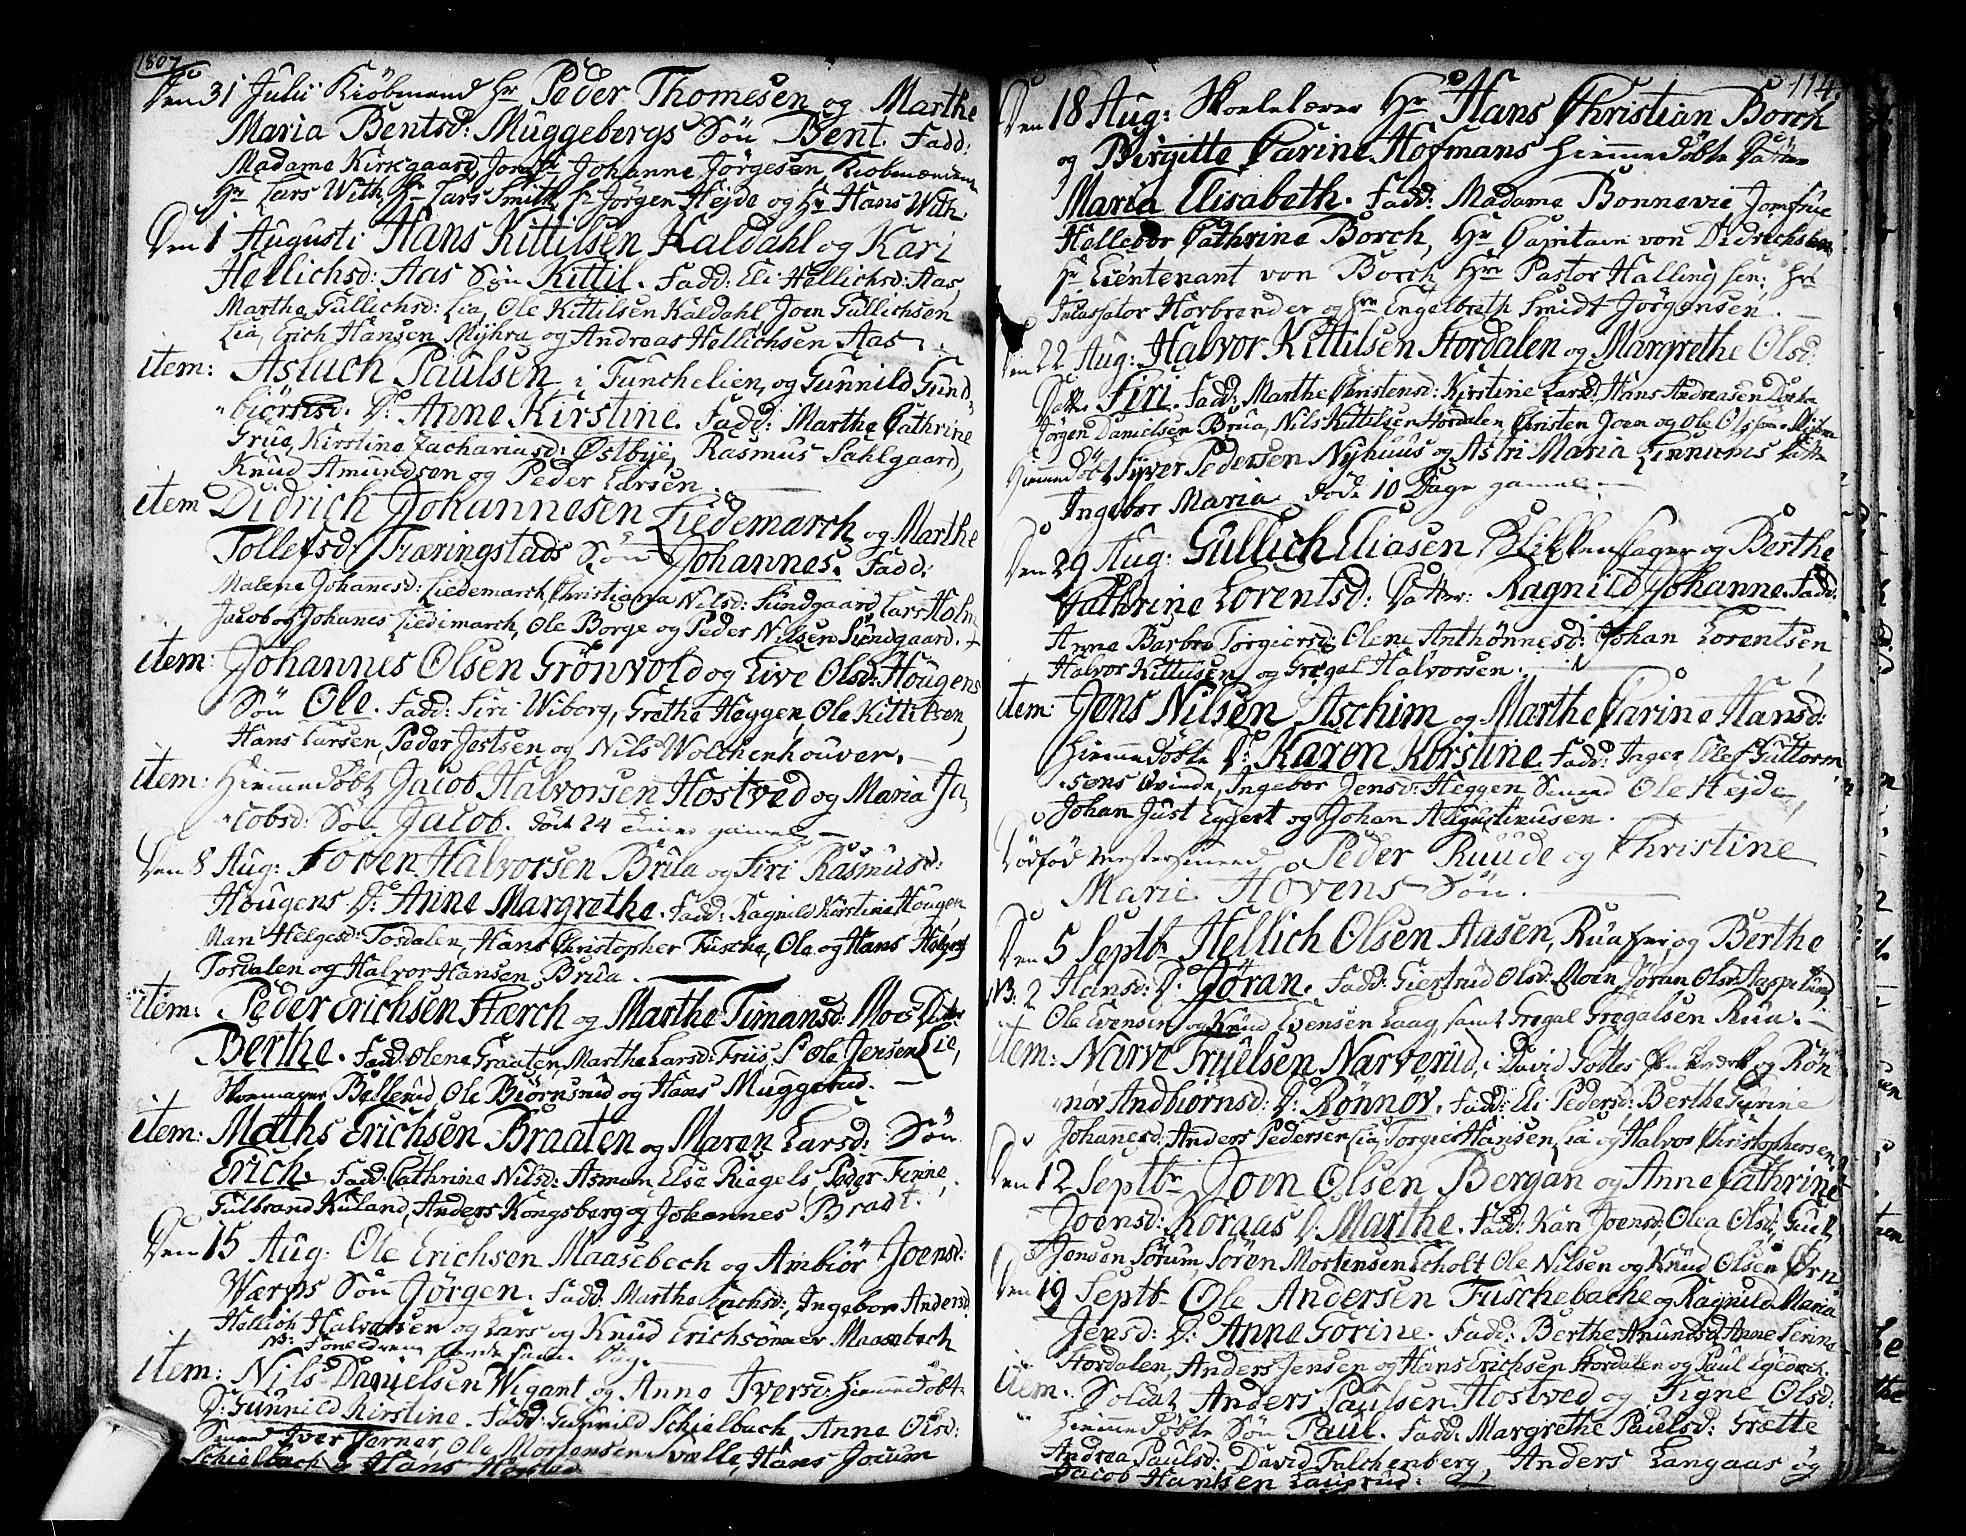 1807
Den 31 Julii Kiöbmand Hr Peder Thomesen og Marthe
Maria Bentsd: Muggebergs Sön Bent. Fadd:
Madame Kirkgaard, Jomfr Johanne Jörgesen, Kiobmændene
Hr Lars With, Hr Lars Smith, Hr Jörgen Hejde og Hr Hans With
Den 1 Augusti Hans Kittilsen Kaldahl og Kari
Hellichsd: Aas Sön Kittil. Fadd: Eli Hellichsd: Aas,
Marthe Gullichsd: Lia, Ole Kittilsen Kaldahl Joen Gullichsen
Lia, Erich Hansen Myhra og Andreas Hellichsen Aas
item: Asluch Paulsen i Funchelien, og Gunnild Gund-
biörnsd. D: Anne Kirstine. Fadd: Marthe Cathrine
Grue, Kirstine Zachariasd: Östbye, Rasmus Sahlgaard,
Knud Amundsen og Peder Larsen.
item Didrich Johannesen Liedemarch og Marthe
Tollefsd: Træringstads Sön Johannes. Fadd:
Malene Johanesd: Liedemarch, Christiana Nilsd: Sundgaard, Lars Holm
Jacob og Johanes Liedemarch, Ole Borge og Peder Nilsen Sundgaard.
item: Johannes Olsen Grönvold og Live Olsd: Hougens
Sön Ole. Fadd: Siri Wiborg, Grethe Heggen, Ole Kittilsen,
Hans Larsen, Peder Jestsen og Nils Wolchenhouver.
item: Hiemmedöbt Jacob Halvorsen Hostved og Maria Ja-
cobsd: Sön Jacob. död 24 timer gamel
Den 8 Aug: Joven Halvorsen Brua og Siri Rasmusd:
Hougens D: Anne Margrethe. Fadd: Ragnild Kirstine Hougen,
Mari Helgesd: Tosdalen, Hans Christopher Fusche, Ole og Hans
Tosdalen og Halvor Hansen Brua.
item: Peder Erichsen Stærch og Marthe Timansd: Moes Datter
Berthe. Fadd: Olene Graaten, Marthe Larsd: Friis, S. Ole Jensen Lie,
Skoemager Bellerud, Ole Biörnsrud og Hans Muggerud.
item: Maths Erichsen Braaten og Maren Larsd: Sön
Erich. Fadd: Cathrine Nilsd: Asman, Else Riegels, Peder Finne,
Gulbrand Ruland, Anders Kongsberg og Johannes Bradt.
Den 15 Aug: Ole Erichsen Maasebech og Ambiör Joensd:
Værps Sön Jörgen. Fadd: Marthe Erichsd:, Ingebor Andersd
Hellich Halvorsen og Lars og Knud Erichsönner Maasebech
NB: Foreldrene samme Dag
item: Nils Danielsen Wigant og Anne Iversd: hiemmedöbt
D: Gunnild Kirstine. Fadd: Gunnild Schielbach, Anne Olsd:
Smeed Iver Varner, Ole Mortensen Svalle, Hans Jocum
Schielbach og Hans
114.
Den 18 Aug: Skolelærer Hr Hans Christian Borch
og Birgitte Carine Hofmans hiemmedöbte Datter
Maria Elisabeth. Fadd: Madame Bonnevie Jomfrue
Hellebor Cathrine Borch, Hr Capitain von Didrichsten
Hr Lieutenant von Borch, Hrr Pastor Halling sen; Hr
Incassator Horbrander og Hrr Engelbreth Smidt Jörgensen.
Den 22 Aug: Halvor Kittilsen Stordalen og Margrethe Olsd:
Datt. Siri. Fadd: Marthe Christensd: Kirstine Larsd: Hans Andreasen
Jörgen Danielsen Brua, Nils Kittilsen Stordalen, Christen Joen og Ole
Hiemmedöbt Siver Pedersen Nyhuus og Astri Maria Linnums Datter
Ingebor Maria. döde 10 Dage gamel.
Den 29 Aug: Gullich Eliasen Blikkenslager og Berthe
Cathrine Lorentsd: Datter: Ragnild Johanne. Fadd:
Anne Barbro Torgiersd: Olene Anthönnesd: Johan Lorentsen,
Halvor Kittilsen og Gregal Halvorsen.
item: Jens Nilsen Aschim og Marthe Carine Hansd:
hiemmedöbte D: Karen Kirstine. Fadd: Inger Ellef Guttorm-
sens Qvinde, Ingebor Jensd: Heggen Smeed Ole Hejde,
Johan Just Eggert og Johan Augustinusen.
Dödföd Mestersmeed Peder Ruude og Christine
Marie Hövens Sön.
Den 5 Septbr Hellich Olsen Aasen, Rua Eie, og Berthe
NB: 2 Hansd: D: Jöran. Fadd: Giertrud Olsd: Moin Jöran Olsd: Aaspelund,
Ole Evensen og Knud Evensen Laag, samt Gregal Gregalsen Rua.
item: Narve Truelsen Narverud, i David Gottes og Rön-
növ Andbiörnsd: D: Rönnöv. Fadd: Eli Pedersd: Berthe Gurine
Johanesd: Anders Pedersen Lia, Torgier Hansen Lia og Halvor Christophersen
Den 12 Septbr Joen Olsen Bergan og Anne Cathrine
Joensd: Koraas D: Marthe. Fadd: Kari Joensd:, Olea Olsd:
Jensen Sörum Sören Mortensen Echolt Ole Nilsen og Knud Olsen Örn
Den 19 Septb Ole Andersen Fuschebache og Ragnild Maria
Jensd: D: Anne Gorine. Fadd: Berthe Anundsd Anne Serine
Stordalen, Anders Jensen og Hans Erichsen Stordalen og Paul
item. Soldat Anders Paulsen Hostved og Signe Olsd:
hiemmedöbte Sön Paul. Fadd: Margrethe Paulsd: Grætte
Andrea Paulsd: David Falchenberg, Anders Langaas og
Jacob Hansen Laugrud.